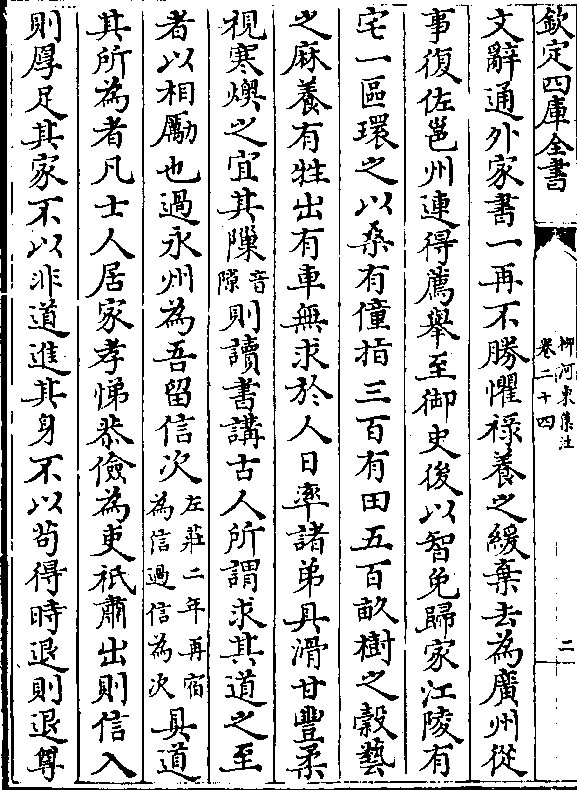 欽定四庫全書
柳河東集注
卷二十四
二
文辭通外家書一再不勝懼祿養之緩棄去為廣州從
事復佐邕州連得薦舉至御史後以智免歸家江陵有
宅一區環之以桑有僮指三百有田五百畝樹之榖藝
之麻養有牲出有車無求於人日率諸弟具滑甘豐柔
視寒燠之宜其隟音隙則讀書講古人所謂求其道之至
者以相勵也過永州為吾留信次左莊二年再宿為信過信為次具道
其所為者凡士人居家孝悌恭儉為吏祗肅出則信入
則厚足其家不以非道進其身不以苟得時退則退尊